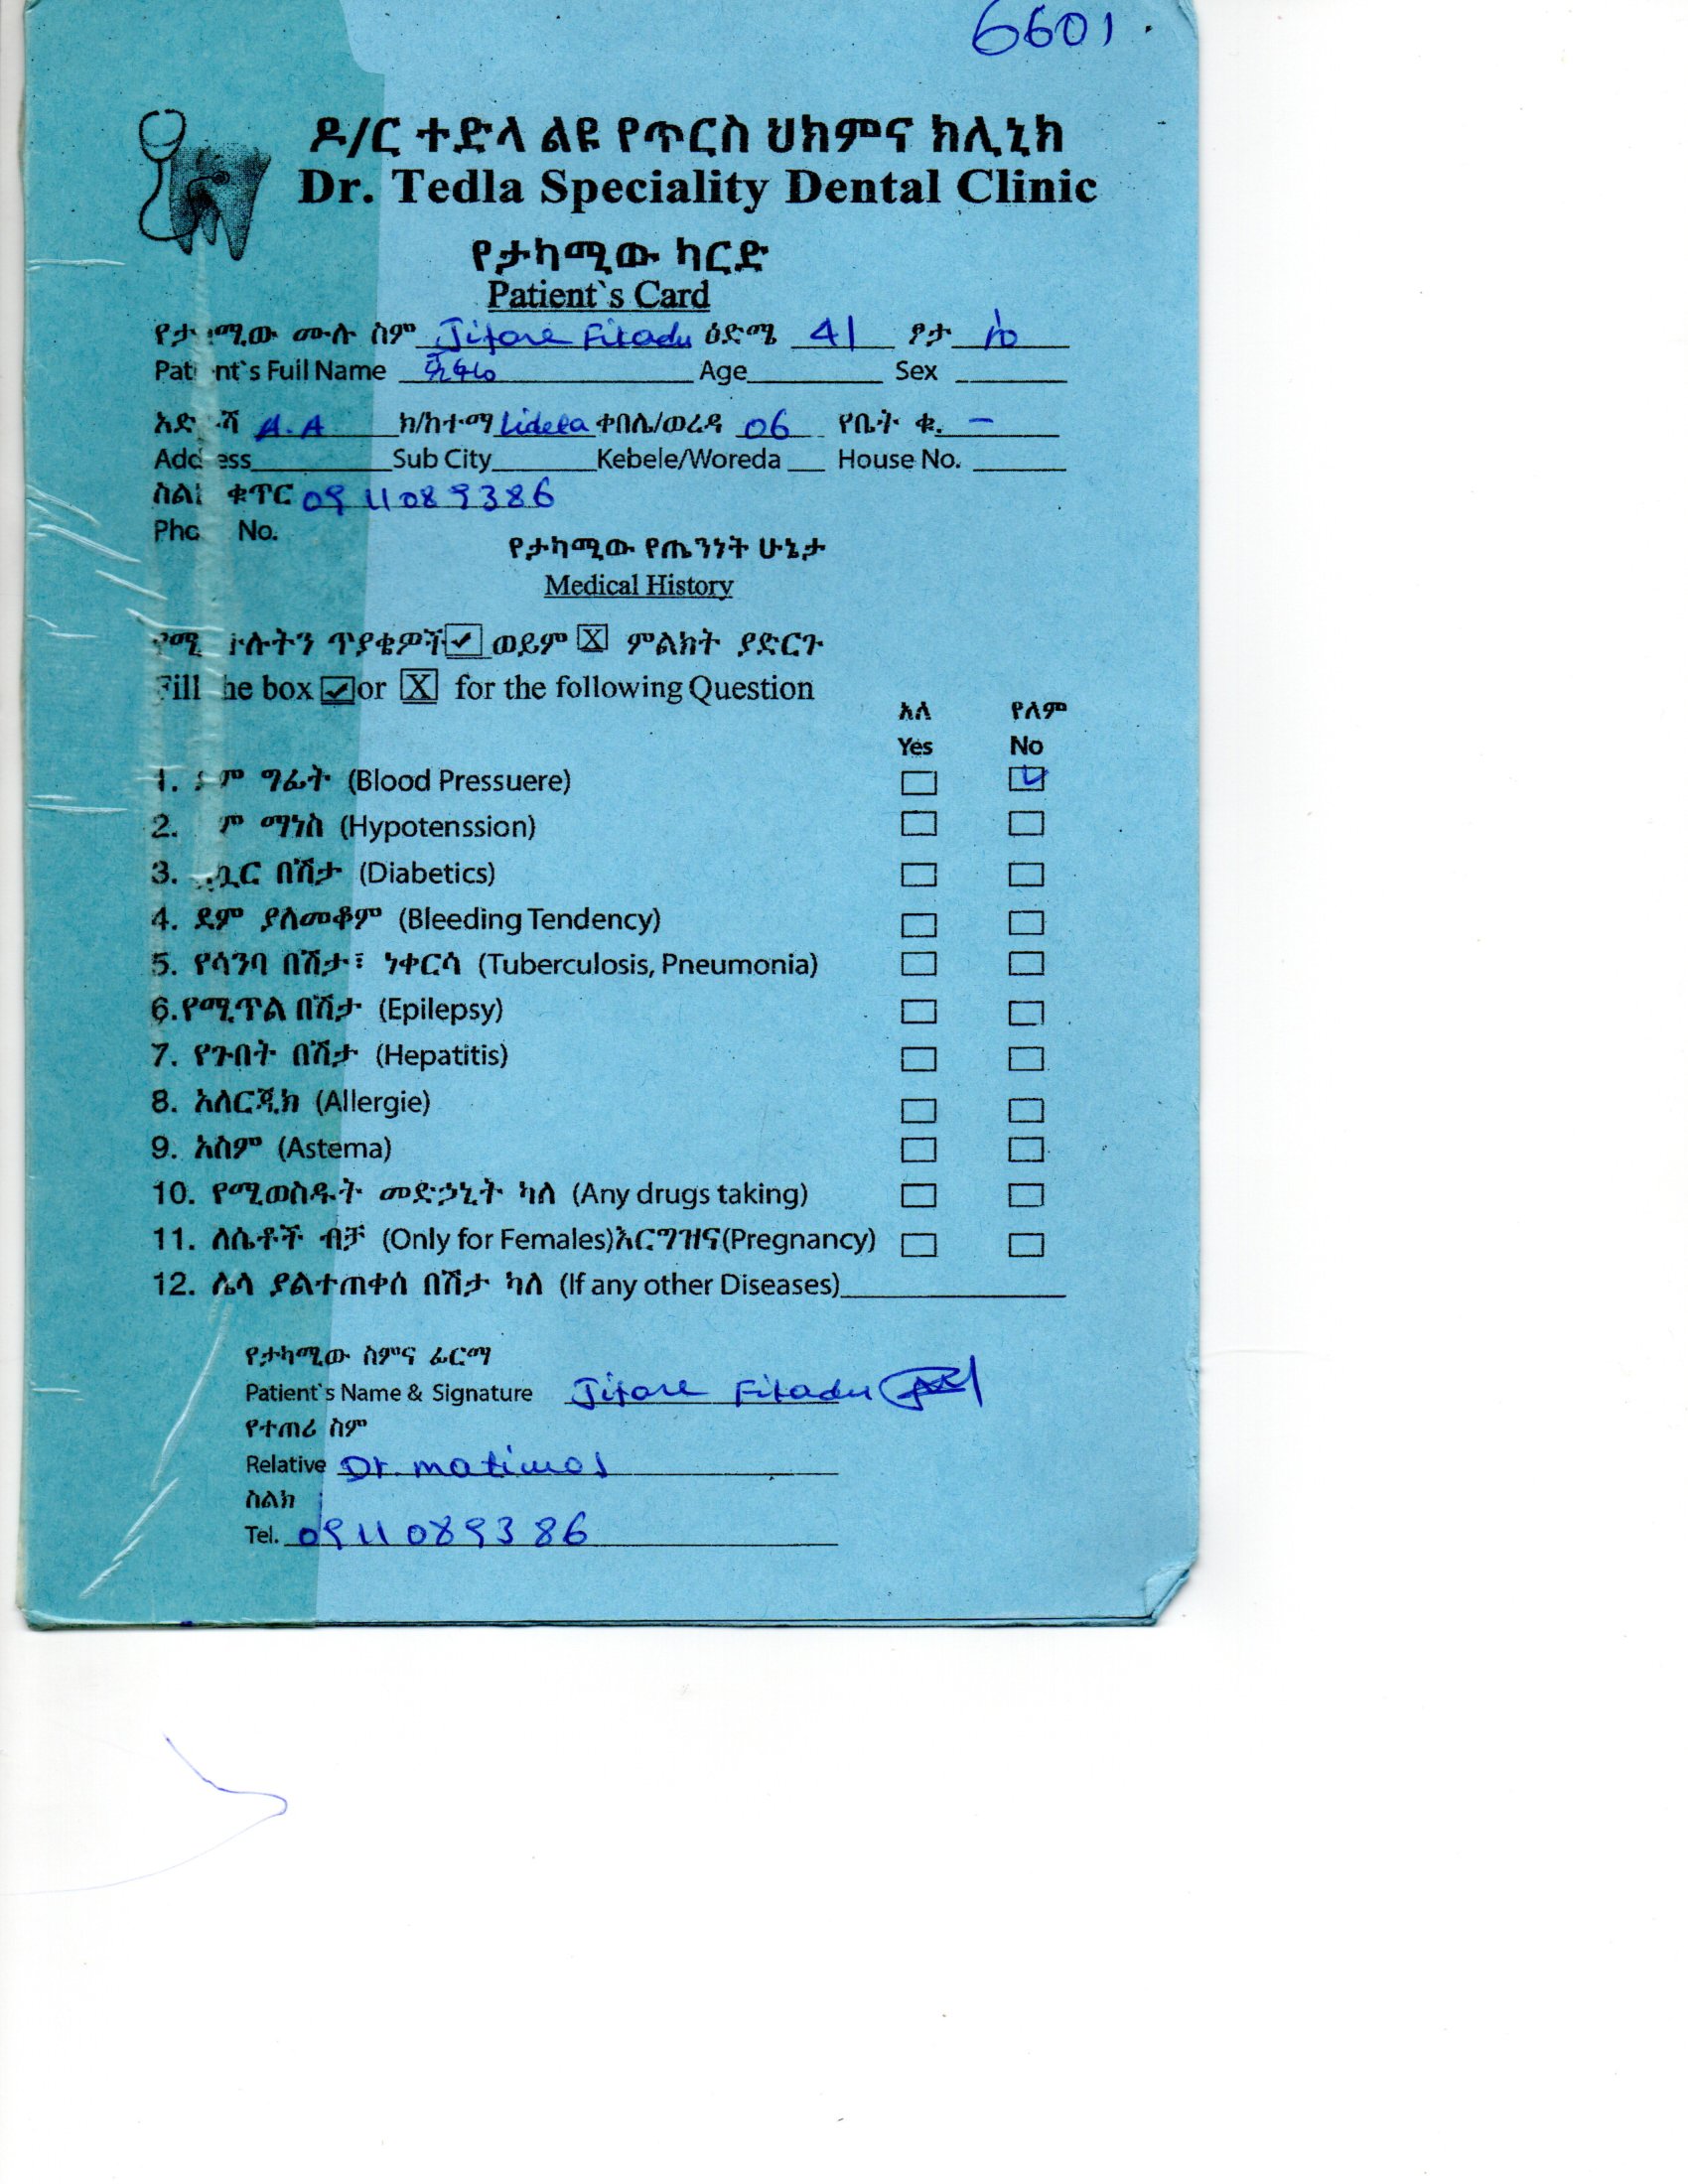 6601
ዶ/ር ተድላ ልዩ የጥርስ ህክምና ክሊኒክ
Dr. Tedla Speciality Dental Clinic
የታካሚው ካርድ
Patient`s Card
ሙሉ ስም Jifare Fikadu ዕድሜ 41 ፆታ
Full Name Age Sex
A.A ክ/ከተማ Lideta ቀበሌ/ወረዳ 06 የቤት ቁ. -
Sub City Kebele/Woreda House No.
ቁጥር 0911089386
No.
የታካሚው የጤንነት ሁኔታ
Medical History
ጥያቄዎች ✓ ወይም X ምልክት ያድርጉ
box ✓ or X for the following Question
አለ የለም
Yes No
1. ግፊት (Blood Pressuere) ✓
2. ማነስ (Hypotenssion)
3. በሽታ (Diabetics)
4. ደም ያለመቆም (Bleeding Tendency)
5. የሳንባ በሽታ፣ ነቀርሳ (Tuberculosis, Pneumonia)
6.የሚጥል በሽታ (Epilepsy)
7. የጉበት በሽታ (Hepatitis)
8. አለርጂክ (Allergie)
9. አስም (Astema)
10. የሚወስዱት መድኃኒት ካለ (Any drugs taking)
11. ለሴቶች ብቻ (Only for Females)እርግዝና(Pregnancy)
12. ሌላ ያልተጠቀሰ በሽታ ካለ (If any other Diseases)
የታካሚው ስምና ፊርማ
Patient`s Name & Signature Jifare Fikadu
የተጠሪ ስም
Relative Dr. matiwos
ስልክ
Tel. 0911089386